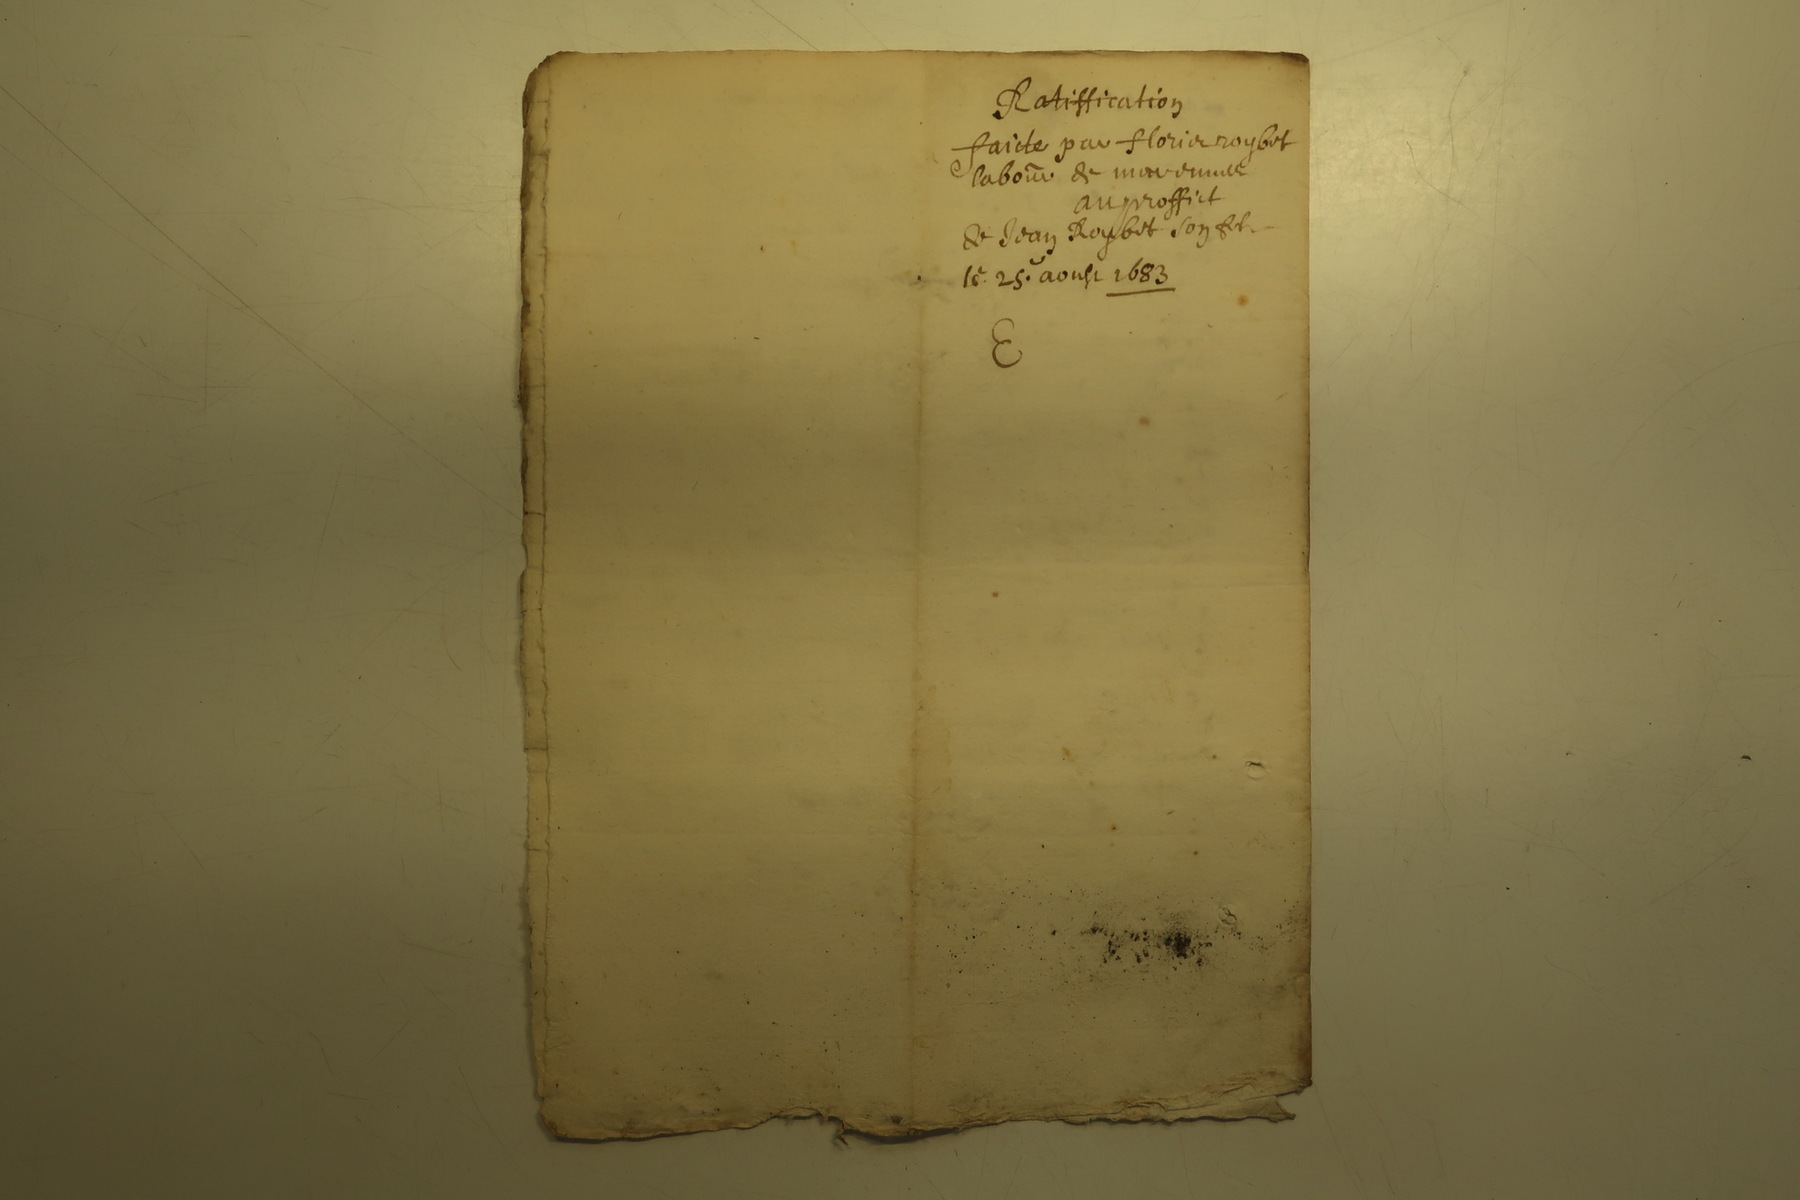 Ratiffication
faicte par florie roybet
labour de marennes
au proffict
de Jean Roybet son fel.
le 25. aoust 1683
E